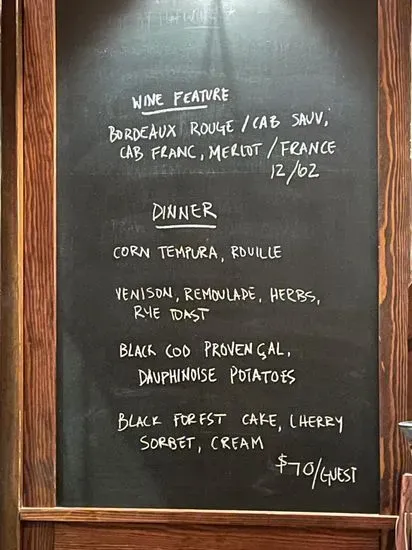 WINE FEATURE
BORDEAUX ROUGE / CAB SAUV,
CAB FRANC, MERLOT / FRANCE
12/62
DINNER
CORN TEMPURA, ROUILLE
VENISON, REMOULADE, HERBS,
RYE TOAST
BLACK COD PROVENÇAL,
DAUPHINOISE POTATOES
BLACK FOREST CAKE, CHERRY
SORBET, CREAM
$70/GUEST